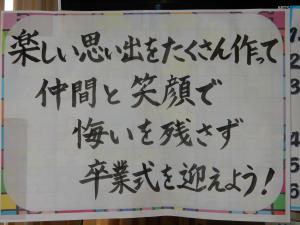 楽しい思い出をたくさん作って
仲間と笑顔で
悔いを残さず
卒業式を迎えよう!